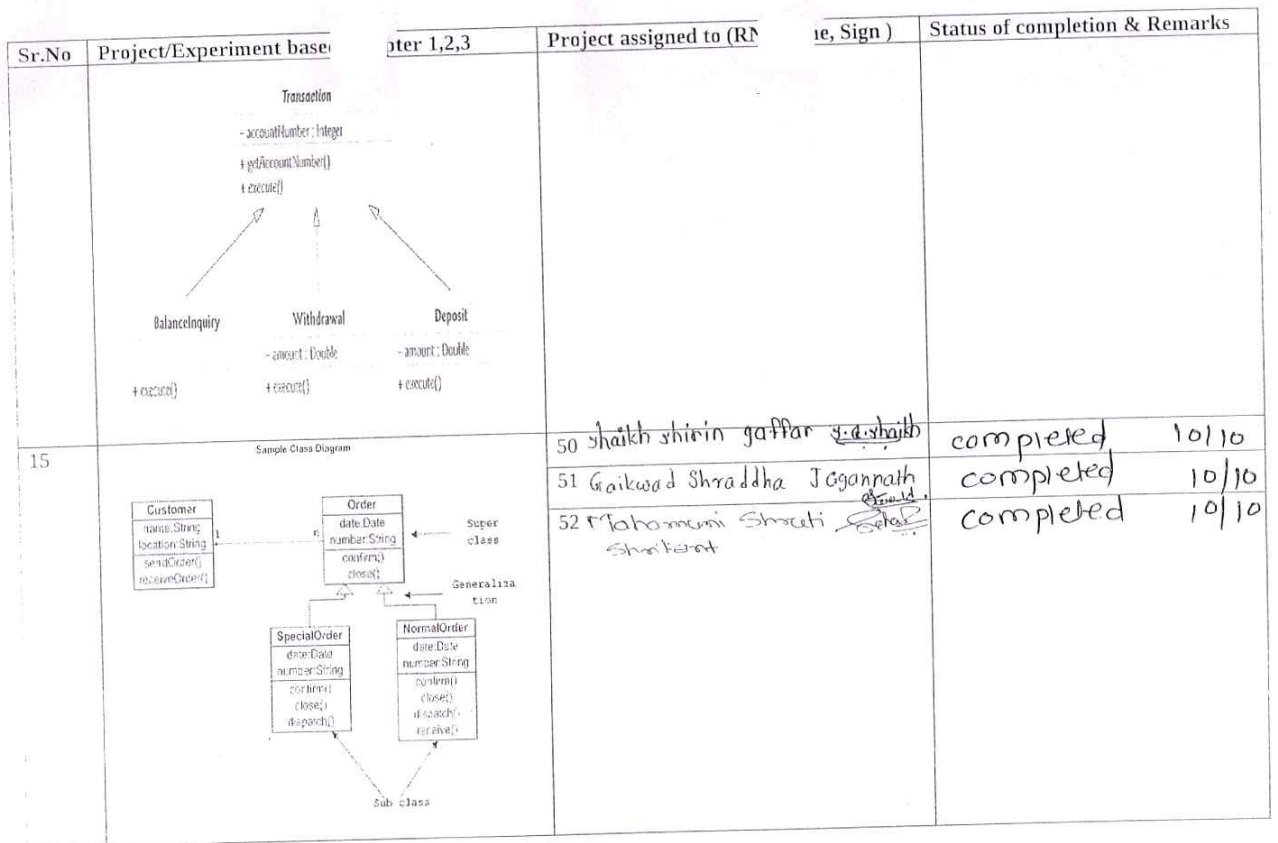 Sr.No Project/Experiment base pter 1,2,3 Project assigned to (RN e, Sign ) Status of completion & Remarks
Transaction
- accountNumber : Integer
+ getAccountNumber()
+ execute()
BalanceInquiry Withdrawal Deposit
- amount : Double - amount : Double
+ execute() + execute() + execute()
15
Sample Class Diagram
Customer
name:String
location:String
sendOrder()
receiveOrder()
1 n
Order
date:Date
number:String
confirm()
close()
Super
class
Generaliza
tion
SpecialOrder
date:Date
number:String
confirm()
close()
dispatch()
NormalOrder
date:Date
number:String
confirm()
close()
dispatch()
receive()
Sub class
50 shaikh shirin gaffar completed 10/10
51 Gaikwad Shraddha Jagannath completed 10/10
52 completed 10/10